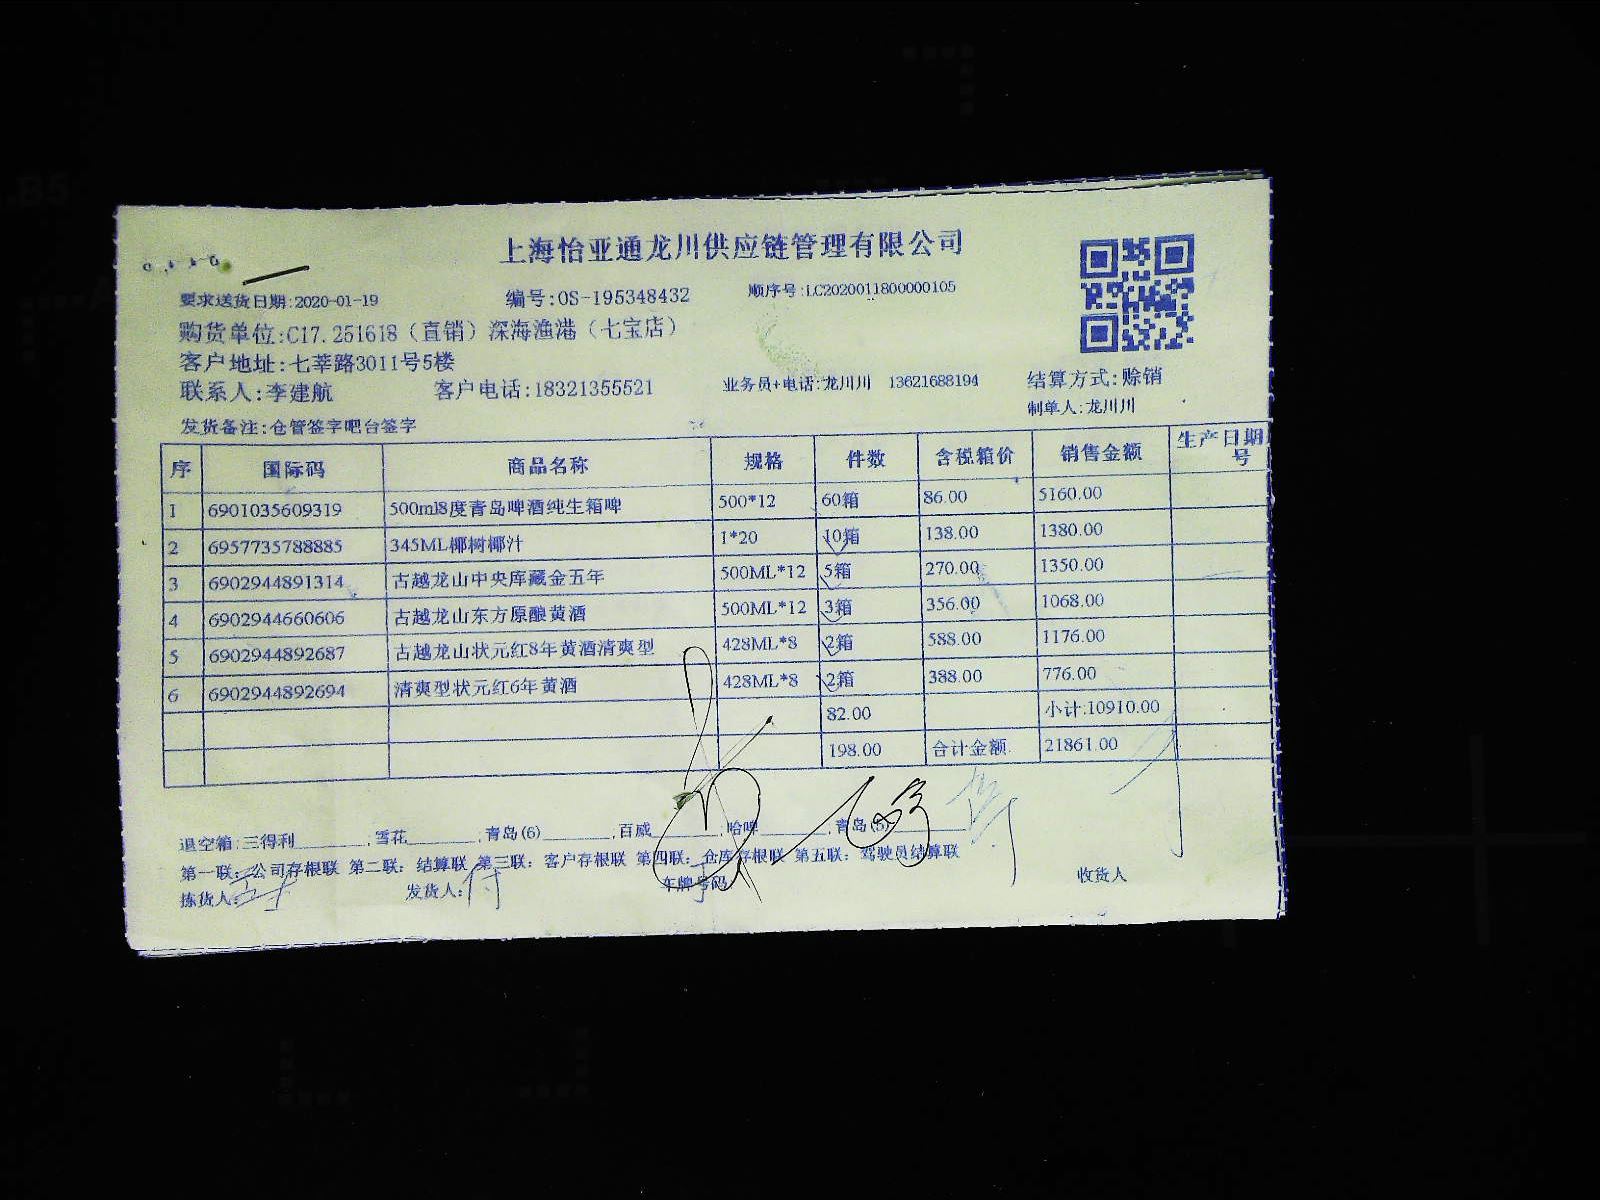 上海怡亚通龙川供应链管理有限公司
要求送货日期:2020-01-19 编号:OS-195348432 顺序号:LC2020011800000105
购货单位:C17.251618（直销）深海渔港（七宝店）
客户地址:七莘路3011号5楼
联系人:李建航 客户电话:18321355521 业务员+电话:龙川川 13621688194 结算方式:赊销
制单人:龙川川
发货备注:仓管签字吧台签字
序 国际码 商品名称 规格 件数 含税箱价 销售金额 生产日期
号
1 6901035609319 500ml8度青岛啤酒纯生箱啤 500*12 60箱 86.00 5160.00
2 6957735788885 345ML椰树椰汁 1*20 10箱 138.00 1380.00
3 6902944891314 古越龙山中央库藏金五年 500ML*12 5箱 270.00 1350.00
4 6902944660606 古越龙山东方原酿黄酒 500ML*12 3箱 356.00 1068.00
5 6902944892687 古越龙山状元红8年黄酒清爽型 428ML*8 2箱 588.00 1176.00
6 6902944892694 清爽型状元红6年黄酒 428ML*8 2箱 388.00 776.00
82.00 小计:10910.00
198.00 合计金额: 21861.00
退空箱:三得利______;雪花______;青岛(6)______;百威______;哈啤______;青岛(5)______
第一联：公司存根联 第二联：结算联 第三联：客户存根联 第四联：仓库存根联 第五联：驾驶员结算联
拣货人: 发货人: 车牌号码 收货人